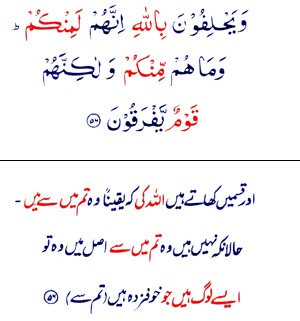 وَيَحْلِفُوْنَ بِاللّٰهِ اِنَّهُمْ لَمِنْكُمْ ؕ
وَمَا هُمْ مِّنْكُمْ وَ لٰكِنَّهُمْ
قَوْمٌ يَّفْرَقُوْنَ ﴿۵۶﴾
اور قسمیں کھاتے ہیں اللہ کی کہ یقیناً وہ تم میں سے ہیں ۔
حالانکہ نہیں ہیں وہ تم میں سے اصل میں وہ تو
ایسے لوگ ہیں جو خوفزدہ ہیں (تم سے) ﴿۵۶﴾